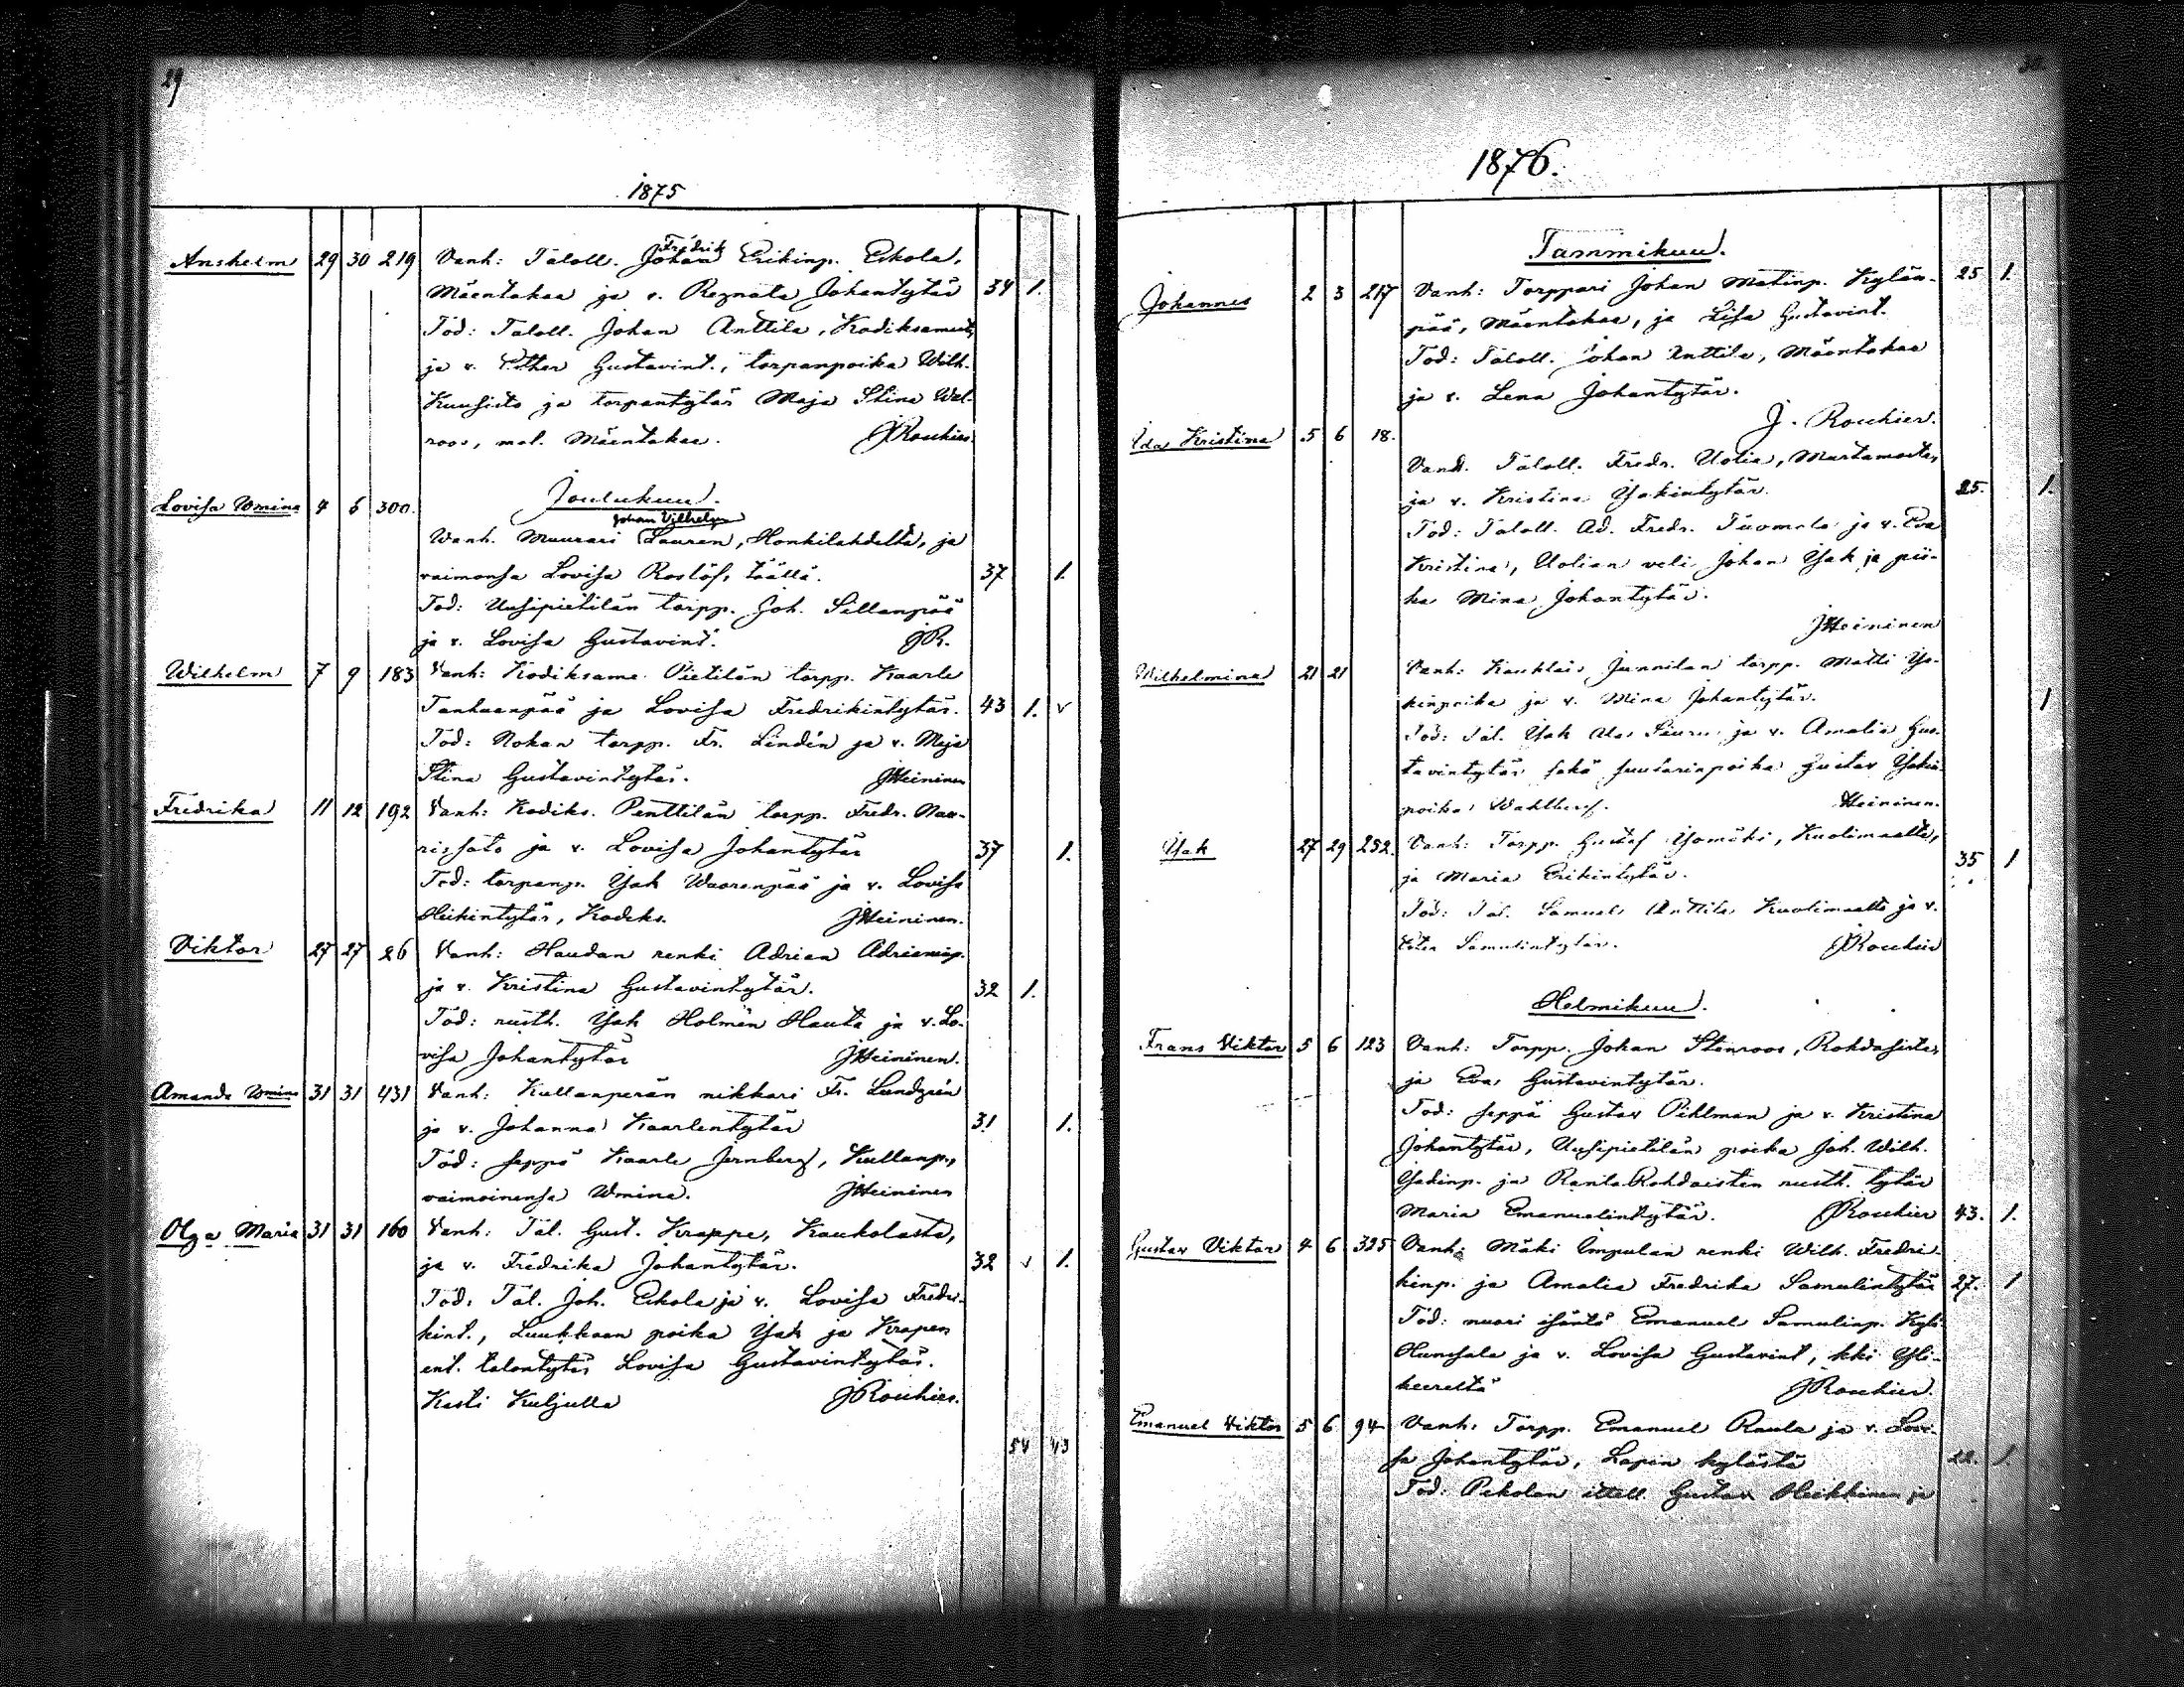 29
1875
Fredrik
Anshelm 29 30 219 Vanh: Taloll. Johan Erikinp. Eskola,
Mäentakaa ja v. Regnata Johantytär 34 1.
Tod: Taloll. Johan Anttila, Kodiksamista,
ja v. Esther Gustavint., torpanpoika Wilh.
Kuusisto ja torpantytär Maja Stina Wal-
roos, mol. Mäentakaa. JRouhier
Joulukuu.
Johan Vilhelm
Lovisa Wmina 4 5 300. Wanh. Muurari Lauren, Honkilahdelta, ja
vaimonsa Lovisa Roslöf, täällä. 37 1.
Tod: Uusipietilän torpp. Joh. Sillanpää
ja v. Lovisa Gustavint. JR.
Wilhelm 7 9 183 Vanh: Kodiksame Pietilän torpp. Kaarle
Tanhuanpää ja Lovisa Fredrikintytär. 43 1. v
Tod: Nohan torpp. Fr. Lindén ja v. Maja
Stina Gustavintytär. JHeininen
Fredrika 11 12 192 Vanh: Kodiks. Penttilän torpp. Fredr. Nau-
rissato ja v. Lovisa Johantytär 37 1.
Tod: torpanp. Isak Waarenpää ja v. Lovisa
Heikintytär, Kodiks. JHeininen.
Viktor 27 27 26 Vanh: Haudan renki Adrian Adrianinp.
ja v. Kristina Gustavintytär. 32 1.
Tod: rusth. Isak Holmén Hauta ja v. Lo-
visa Johantytär JHeininen.
Amanda Wmina 31 31 431 Vanh: Kullanperän nikkari Fr. Lundgrén
ja v. Johanna Kaarlentytär 31 1.
Tod: seppä Kaarle Jernberg, Kullanp.,
vaimoinensa Wmina. JHeininen
Olga Maria 31 31 160 Vanh: Tal. Gust. Krappe, Kaukolasta,
ja v. Fredrika Johantytär. 32 v 1.
Tod. Tal. Joh. Eskola ja v. Lovisa Fredri-
kint., Luukkaan poika Isak ja Krapen
ent. talontytär Lovisa Gustavintytär.
Kasti Kuljulla JRouhier.
54 43
1876.
Tammikuu.
Johannes 2 3 217 Vanh: Torppari Johan Matinp. Kylän- 25 1.
pää, Mäentakaa, ja Lisa Gustavint.
Tod: Taloll. Johan Anttila, Mäentakaa
ja v. Lena Johantytär.
J. Rouhier.
Ida Kristina 5 6 18. Vanh. Taloll. Fredr. Uotia, Murtamosta,
ja v. Kristina Isakintytär. 25. 1.
Tod: Taloll. Ad. Fredr. Tuomola ja v. Eva
Kristina, Uotian veli Johan Isak ja pii-
ka Mina Johantytär.
JHeininen
Wilhelmina 21 21 Vanh: Kauklais Junnilan torpp. Matti Isa-
kinpoika ja v. Mina Johantytär. 1
Tod: Tal. Isak Ala ja v. Amalia Gus-
tavintytär sekä suutarinpoika Gustav Isakin-
poika Wahlberg. Heininen.
Isak 27 29 252. Vanh: Torpp. Gustaf Isomäki, Kuolimaalta,
ja Maria Erikintytär. 35 1
Tod: Tal. Samuel Anttila Kuolimaalta ja v.
Samulintytär. JRouhier
Helmikuu.
Frans Viktor 5 6 123 Vanh: Torpp. Johan Stenroos, Rohdaisista,
ja Eva Gustavintytär.
Tod: seppä Gustav Pihlman ja v. Kristina
Johantytär, Uusipietilän poika Joh. Wilh.
Isakinp. ja Ranta Rohdaisten rusth. tytär
Maria Emanuelintytär. JRouhier 43. 1.
Gustav Viktor 4 6 325 Vanh: Mäki Impulan renki Wilh. Fredri-
kinp. ja Amalia Fredrika Samulintytär 27. 1
Tod: nuori isäntä Emanuel Samulinp. Kylä
Humsala ja v. Lovisa Gustavint, kki Yli-
keereltä JRouhier.
Emanuel Viktor 5 6 94 Vanh: Torpp. Emanuel Raula ja v. Lovi-
sa Johantytär, Lapin kylästä 22. 1.
Tod: Pekolan ittell. Gustav Heikkinen ja